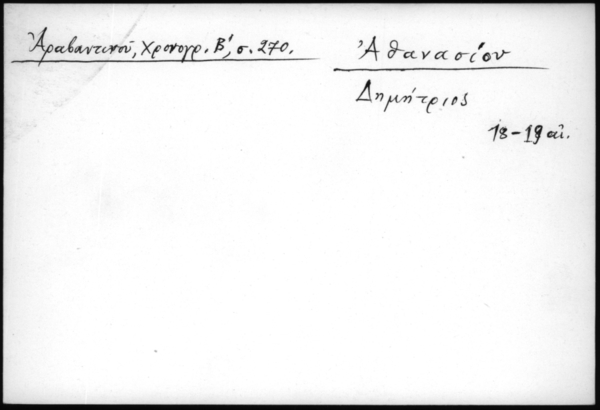 Ἀραβαντινοῦ, Χρονογρ. Β', σ. 270.
Ἀθανασίου
Δημήτριος
18-19 αἰ.